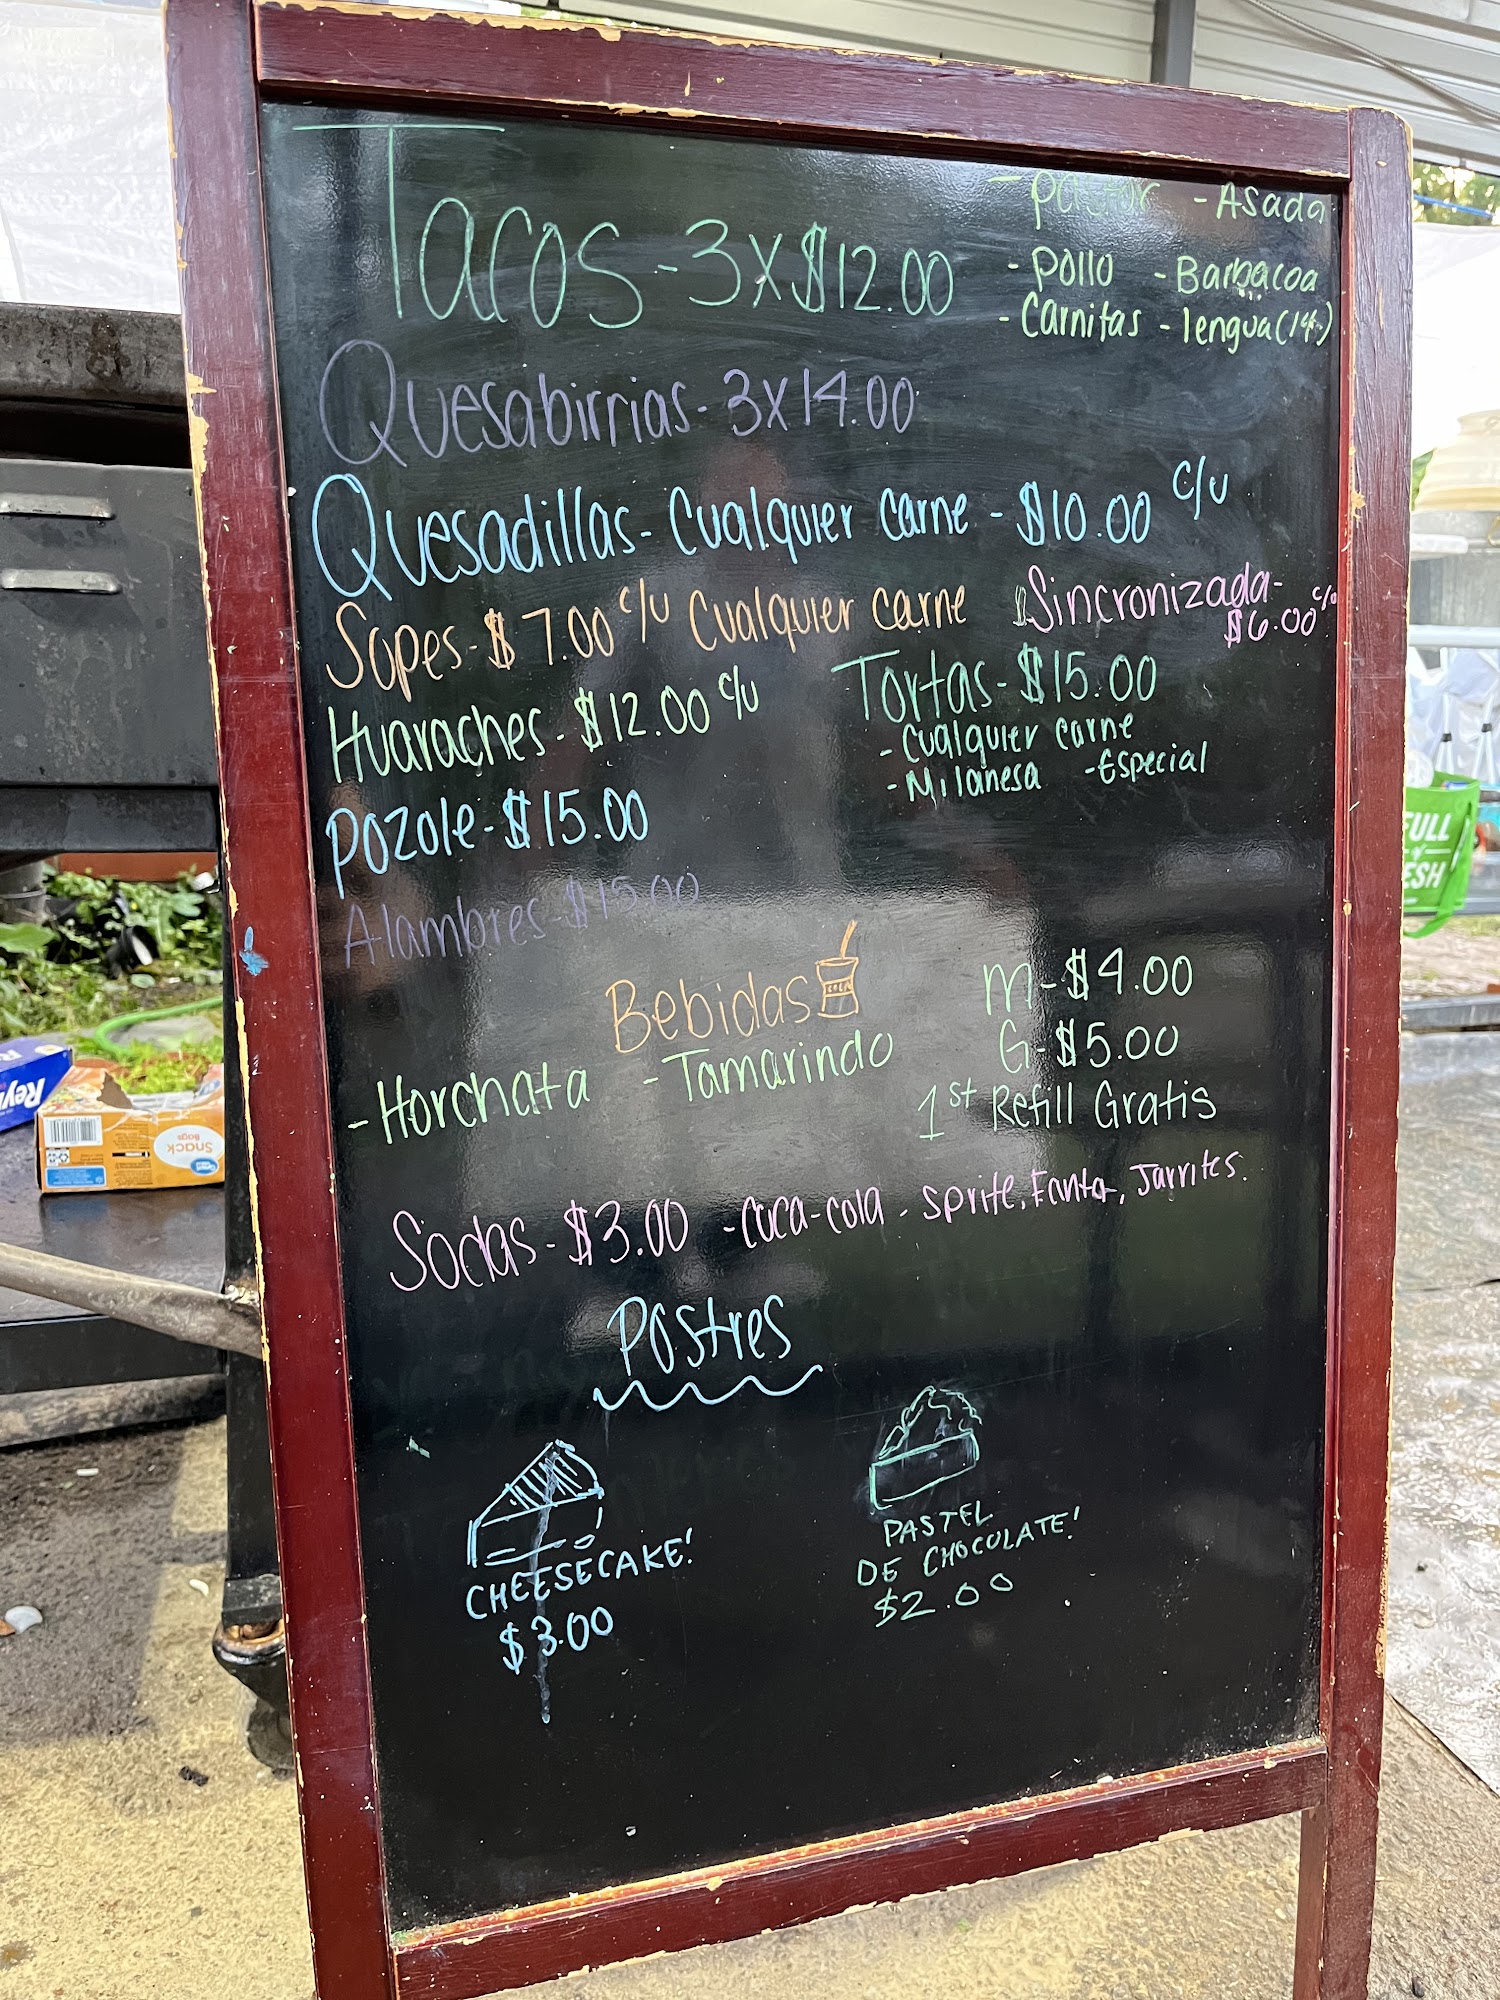 Tacos - 3 x $12.00
- Pastor - Asada
- Pollo - Barbacoa
- Carnitas - lengua
Quesabirrias - 3 x 14.00
Quesadillas - Cualquier carne - $10.00 c/u
Sopes - $7.00 c/u Cualquier carne
Sincronizada -
$6.00 c/u
Huaraches - $12.00 c/u
Tortas - $15.00
- Cualquier carne
- Milanesa - Especial
Pozole - $15.00
Alambres - $15.00
Bebidas
COCA
- Horchata - Tamarindo
M - $4.00
G - $5.00
1st Refill Gratis
Sodas - $3.00 - Coca-cola - Sprite, Fanta, Jarrites.
Postres
CHEESECAKE!
$3.00
PASTEL
DE CHOCOLATE!
$2.00
FULL
ESH
Rey
Snack
BAGS